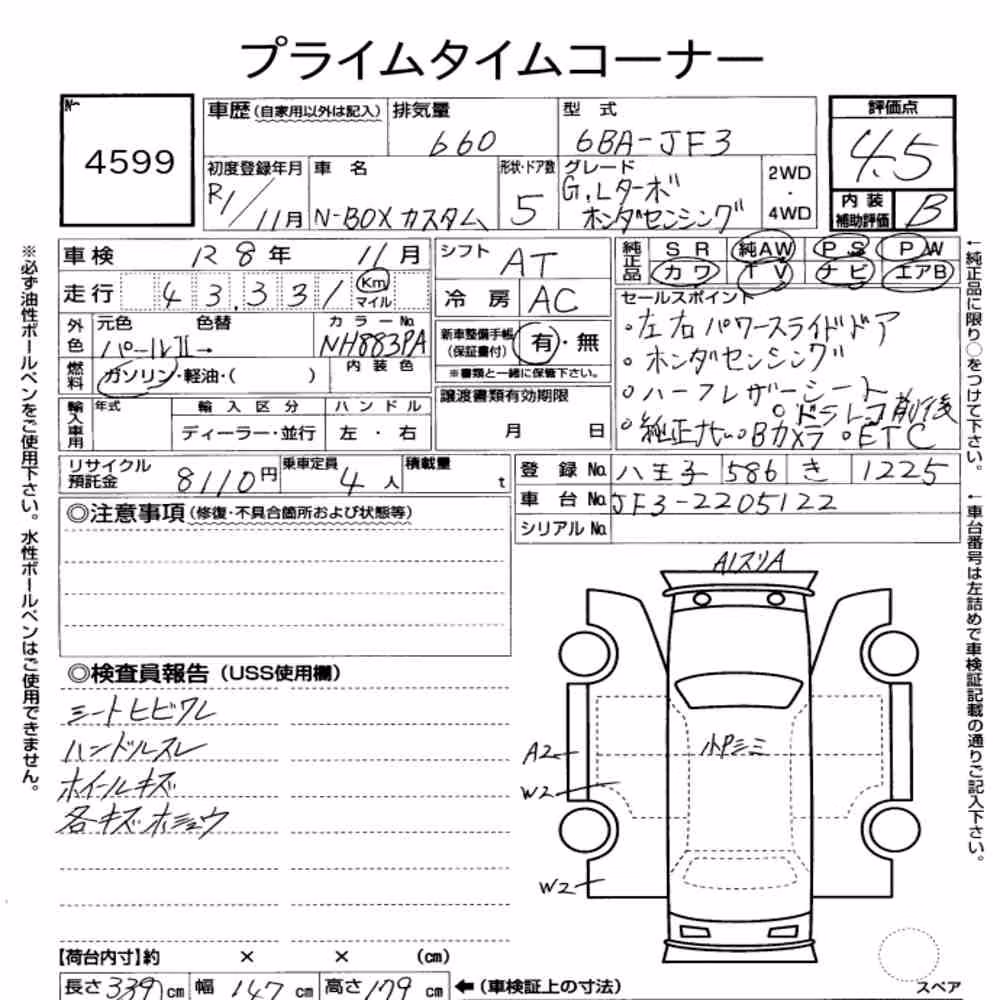 プライムタイムコーナー
№
4599
車歴(自家用以外は記入)
排気量
660
型式
6BA-JF3
評価点
4.5
初度登録年月
R1/11月
車名
N-BOXカスタム
形状・ドア数
5
グレード
G.Lターボ
ホンダセンシング
2WD
・
4WD
内装
補助評価
B
車検 R8年 11月
シフト AT
純正品
SR 純AW PS PW
カワ TV ナビ エアB
走行 43,331 Km
マイル
冷房 AC
セールスポイント
・左右パワースライドドア
・ホンダセンシング
・ハーフレザーシート
・ドラレコ前後
・純正ナビ・Bカメラ・ETC
外色
元色 色替
パールII→
カラーNo.
NH883PA
内装色
新車整備手帳
(保証書付)
有・無
※書類と一緒に保管下さい。
燃料
ガソリン・軽油・( )
譲渡書類有効期限
月 日
輸入車用
年式
輸入区分
ハンドル
ディーラー・並行
左・右
リサイクル
預託金
8110円
乗車定員
4人
積載量
t
登録No. 八王子 586 き 1225
車台No. JF3-2205122
シリアルNo.
◎注意事項(修復・不具合箇所および状態等)
◎検査員報告(USS使用欄)
シートヒビワレ
ハンドルスレ
ホイールキズ
各キズホシュウ
A1スリA
小Pミミ
A2
W2
W2
【荷台内寸】約 × × (cm)
長さ339cm 幅147cm 高さ179cm ←(車検証上の寸法)
スペア
※必ず油性ボールペンをご使用下さい。水性ボールペンはご使用できません。
←純正品に限り○をつけて下さい。
←車台番号は左詰めで車検証記載の通りご記入下さい。